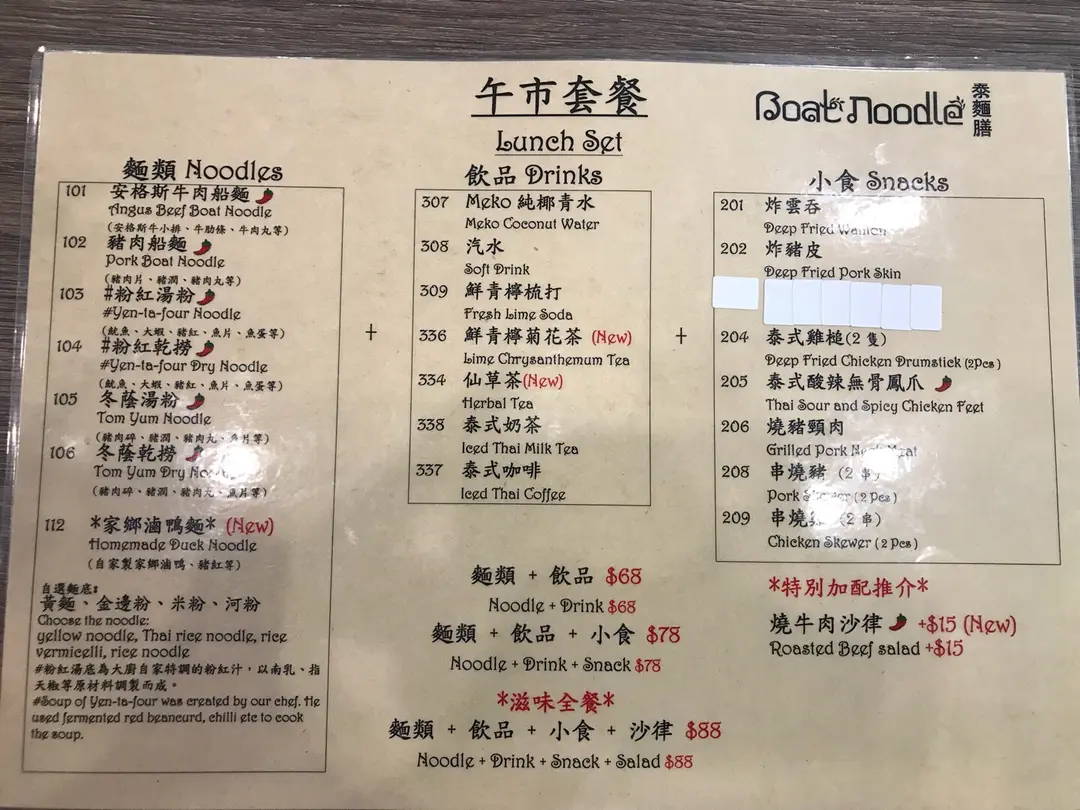 午市套餐
Lunch Set
Boat Noodle 泰麵膳
麵類 Noodles
101 安格斯牛肉船麵
Angus Beef Boat Noodle
(安格斯牛小排、牛肋條、牛肉丸等)
102 豬肉船麵
Pork Boat Noodle
(豬肉片、豬潤、豬肉丸等)
103 #粉紅湯粉
#Yen-ta-four Noodle
(魷魚、大蝦、豬紅、魚片、魚蛋等)
104 #粉紅乾撈
#Yen-ta-four Dry Noodle
(魷魚、大蝦、豬紅、魚片、魚蛋等)
105 冬蔭湯粉
Tom Yum Noodle
(豬肉碎、豬潤、豬肉丸、魚片等)
106 冬蔭乾撈
Tom Yum Dry Noodle
(豬肉碎、豬潤、豬肉丸、魚片等)
112 *家鄉滷鴨麵* (New)
Homemade Duck Noodle
(自家製家鄉滷鴨、豬紅等)
自選麵底:
黃麵、金邊粉、米粉、河粉
Choose the noodle:
yellow noodle, Thai rice noodle, rice
vermicelli, rice noodle
#粉紅湯底為大廚自家特調的粉紅汁，以南乳、指
天椒等原材料調製而成。
#Soup of Yen-ta-four was created by our chef. He
used fermented red beancurd, chilli etc to cook
the soup.
+
飲品 Drinks
307 Meko 純椰青水
Meko Coconut Water
308 汽水
Soft Drink
309 鮮青檸梳打
Fresh Lime Soda
336 鮮青檸菊花茶 (New)
Lime Chrysanthemum Tea
334 仙草茶(New)
Herbal Tea
338 泰式奶茶
Iced Thai Milk Tea
337 泰式咖啡
Iced Thai Coffee
+
小食 Snacks
201 炸雲吞
Deep Fried Wanton
202 炸豬皮
Deep Fried Pork Skin
204 泰式雞槌(2 隻)
Deep Fried Chicken Drumstick (2Pcs)
205 泰式酸辣無骨鳳爪
Thai Sour and Spicy Chicken Feet
206 燒豬頸肉
Grilled Pork Neck Meat
208 串燒豬 (2 串)
Pork Skewer (2 Pcs)
209 串燒雞 (2 串)
Chicken Skewer (2 Pcs)
麵類 + 飲品 $68
Noodle + Drink $68
麵類 + 飲品 + 小食 $78
Noodle + Drink + Snack $78
*滋味全餐*
麵類 + 飲品 + 小食 + 沙律 $88
Noodle + Drink + Snack + Salad $88
*特別加配推介*
燒牛肉沙律 +$15 (New)
Roasted Beef salad +$15